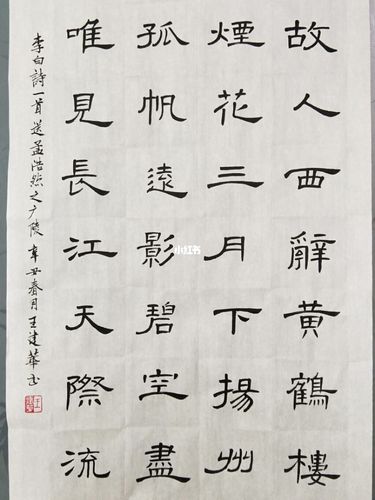 故人西辭黃鶴樓
煙花三月下揚州
孤帆遠影碧空盡
唯見長江天際流
李白詩一首送孟浩然之广陵辛丑春月王建華书
小红书